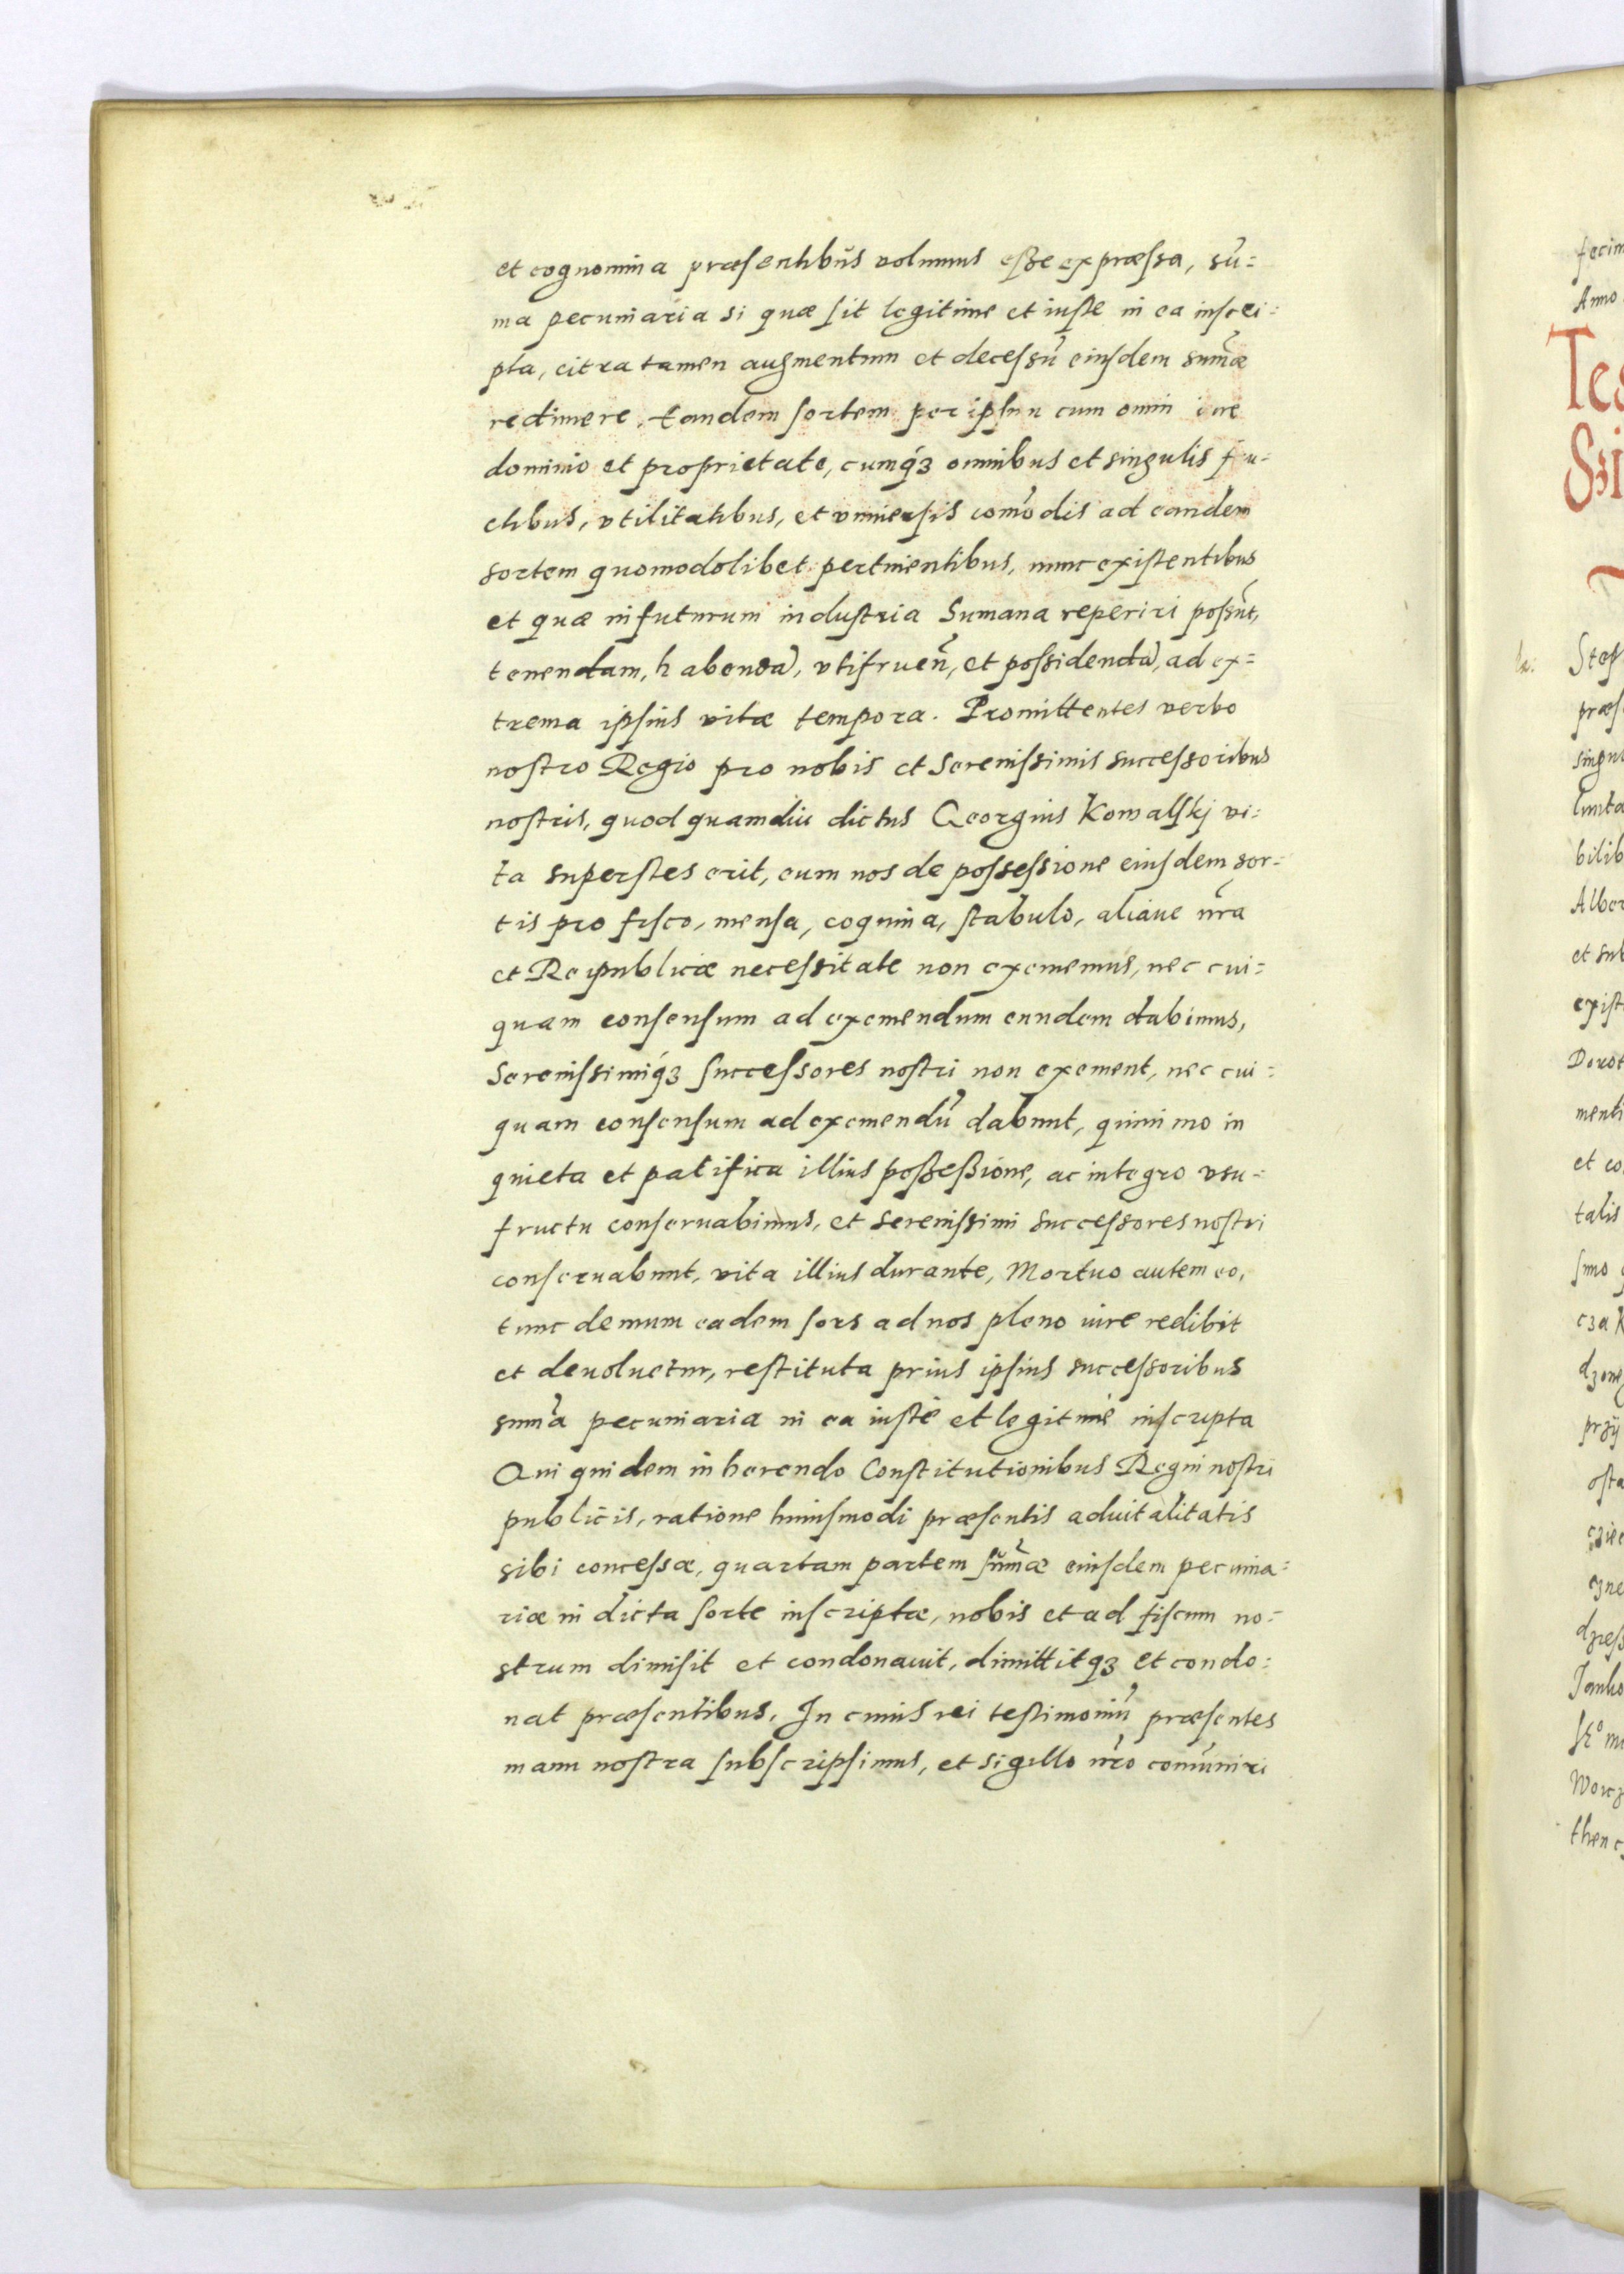 et cognomina præsentibus volumus eſse expræſsa, sū=
ma pecuniaria si quæ sit legitime et iuste in ea inscri=
pta, citra tamen augmentum et decessū eiusdem sum̄æ
redimere, eandem sortem per ipsum cum omni iure
dominio et proprietate, cumqꝫ omnibus et singulis fru=
ctibus, vtilitatibus, et vniuersis com̄odis ad eandem
sortem quomodolibet pertinentibus, nunc existentibus
et quæ in futurum industria Humana reperiri possūt,
tenendam, habendā, vtifruen̄, et possidendā, ad ex=
trema ipsius vitæ tempora. Promittentes verbo
nostro Regio pro nobis et Serenissimis successoribus
nostris, quod quamdiu dictus Georgius Kowalskj vi=
ta superstes erit, eum nos de possessione eiusdem sor=
tis pro fisco, mensa, coquina, stabulo, aliaue nr̄a
et Reipublicæ necessitate non exememus, nec cui=
quam consensum ad exemendum eundem dabimus,
Serenissimiqꝫ successores nostri non exement, nec cui=
quam consensum ad exemendū dabunt, quinimo in
quieta et pacifica illius poßeßione, ac integro vsu=
fructu conseruabimus, et serenissimi successores nostri
conseruabunt, vita illius durante, Mortuo autem eo,
tunc demum eadem sors ad nos pleno iure redibit
et deuoluetur, restituta prius ipsius successoribus
sum̄a pecuniaria in ea iuste et legitime inscripta
Qui quidem inherendo Constitutionibus Regni nostri
publicis, ratione huiusmodi præsentis aduitalitatis
sibi concessæ, quartam partem sum̄æ eiusdem pecunia=
riæ in dicta sorte inscriptæ, nobis et ad fiscum no=
strum dimisit et condonauit, dimittitqꝫ et condo=
nat præsentibus. In cuius rei testimoniū præsentes
manu nostra subscripsimus, et sigillo nr̄o com̄uniri